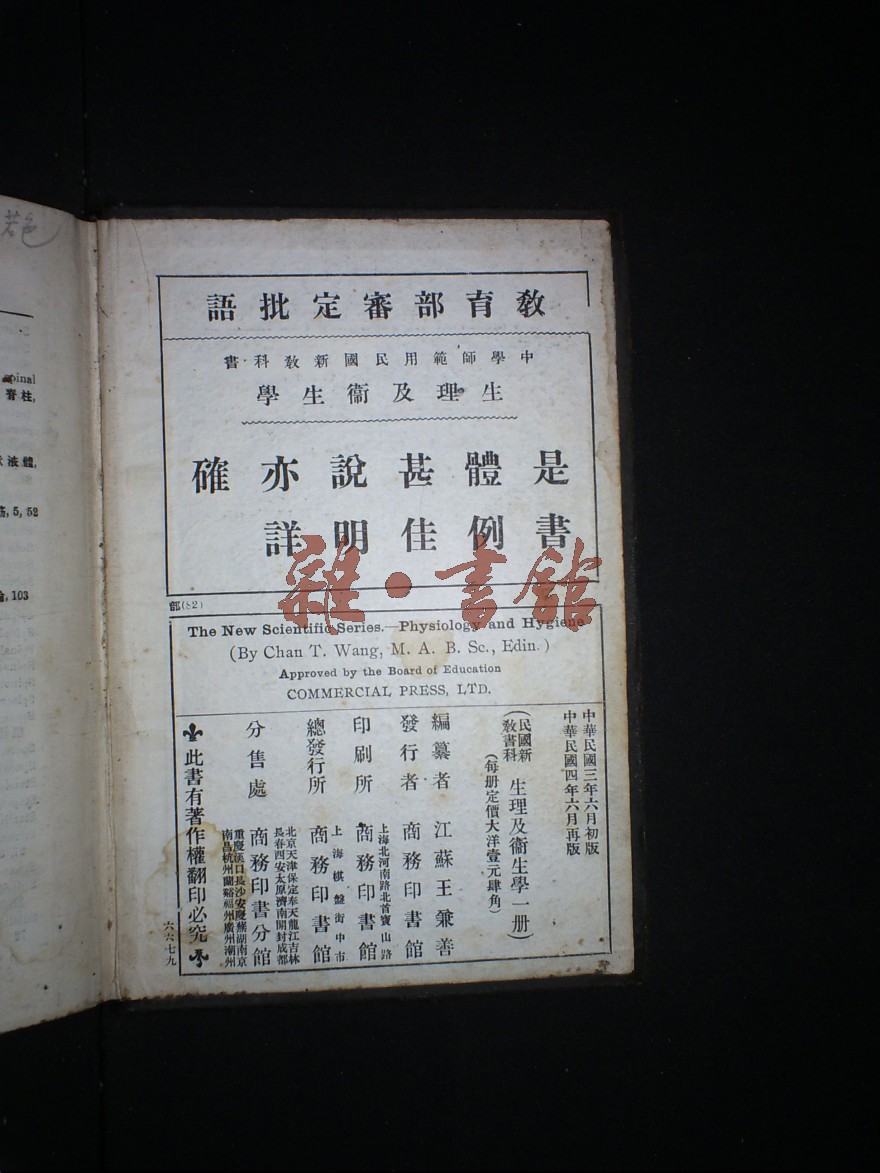 若色
spinal
脊柱,
液體,
5, 52
103
教育部審定批語
中學師範用民國新教科書
生理及衞生學
是書體例甚佳說明亦詳確
部(82)
The New Scientific Series.—Physiology and Hygiene
(By Chan T. Wang, M. A. B. Sc., Edin.)
Approved by the Board of Education
COMMERCIAL PRESS, LTD.
中華民國三年六月初版
中華民國四年六月再版
(民國新教科書 生理及衞生學一册)
(每册定價大洋壹元肆角)
編纂者 江蘇王兼善
發行者 商務印書館
上海北河南路北首寶山路
印刷所 商務印書館
上海棋盤街中市
總發行所 商務印書館
北京天津保定奉天龍江吉林
長春西安太原濟南開封成都
分售處 商務印書分館
重慶漢口長沙安慶蕪湖南京
南昌杭州蘭谿福州廣州潮州
此書有著作權翻印必究
六六七九
雜·書館